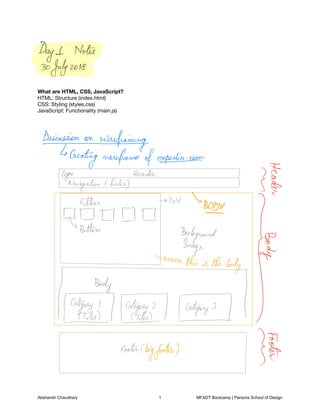 Day 1 Notes
30 July 2018
What are HTML, CSS, JavaScript?
HTML: Structure (index.html)
CSS: Styling (styles.css)
JavaScript: Functionality (main.js)
Discussion on wireframing
Creating wireframe of expedia.com
Logo Header
Navigation (links)
Header
Filters
DIV
BODY
Buttons
Background
Image
Body
even this is the body
Body
Category 1
(Titles)
Category 2
(Titles)
Category 3
Footer (big footer)
Footer
Akshansh Chaudhary 1 MFADT Bootcamp | Parsons School of Design